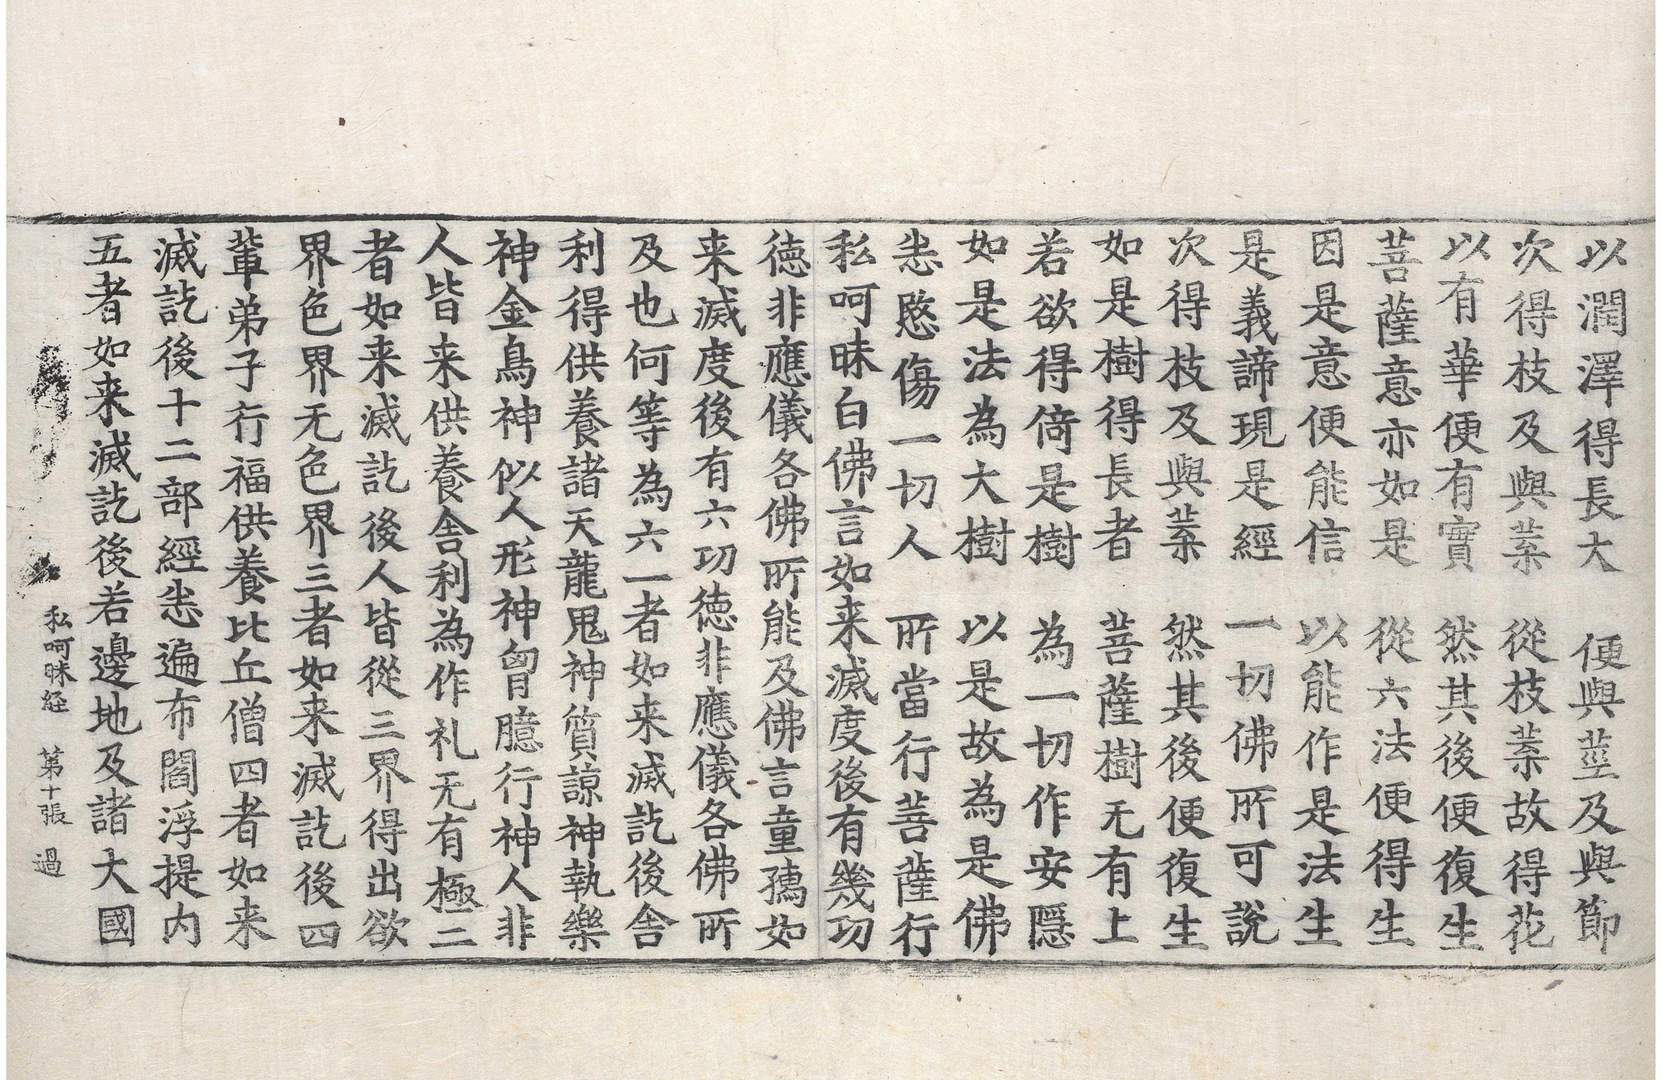 以潤澤得長大　便與莖及與節
次得枝及與葉　從枝葉故得花
以有華便有實　然其後便復生
菩薩意亦如是　從六法便得生
因是意便能信　以能作是法生
是義諦現是經　一切佛所可說
次得枝及與葉　然其後便復生
如是樹得長者　菩薩樹无有上
若欲得倚是樹　為一切作安隱
如是法為大樹　以是故為是佛
恙愍傷一切人　所當行菩薩行
私呵昧白佛言如来滅度後有幾功
德非應儀各佛所能及佛言童孺如
来滅度後有六功德非應儀各佛所
及也何等為六一者如来滅訖後舍
利得供養諸天龍鬼神質諒神執樂
神金鳥神似人形神胷臆行神人非
人皆来供養舍利為作礼无有極二
者如来滅訖後人皆從三界得出欲
界色界无色界三者如来滅訖後四
輩弟子行福供養比丘僧四者如来
滅訖後十二部經恙遍布閻浮提内
五者如来滅訖後若邊地及諸大國
私呵昧経　第十張　過